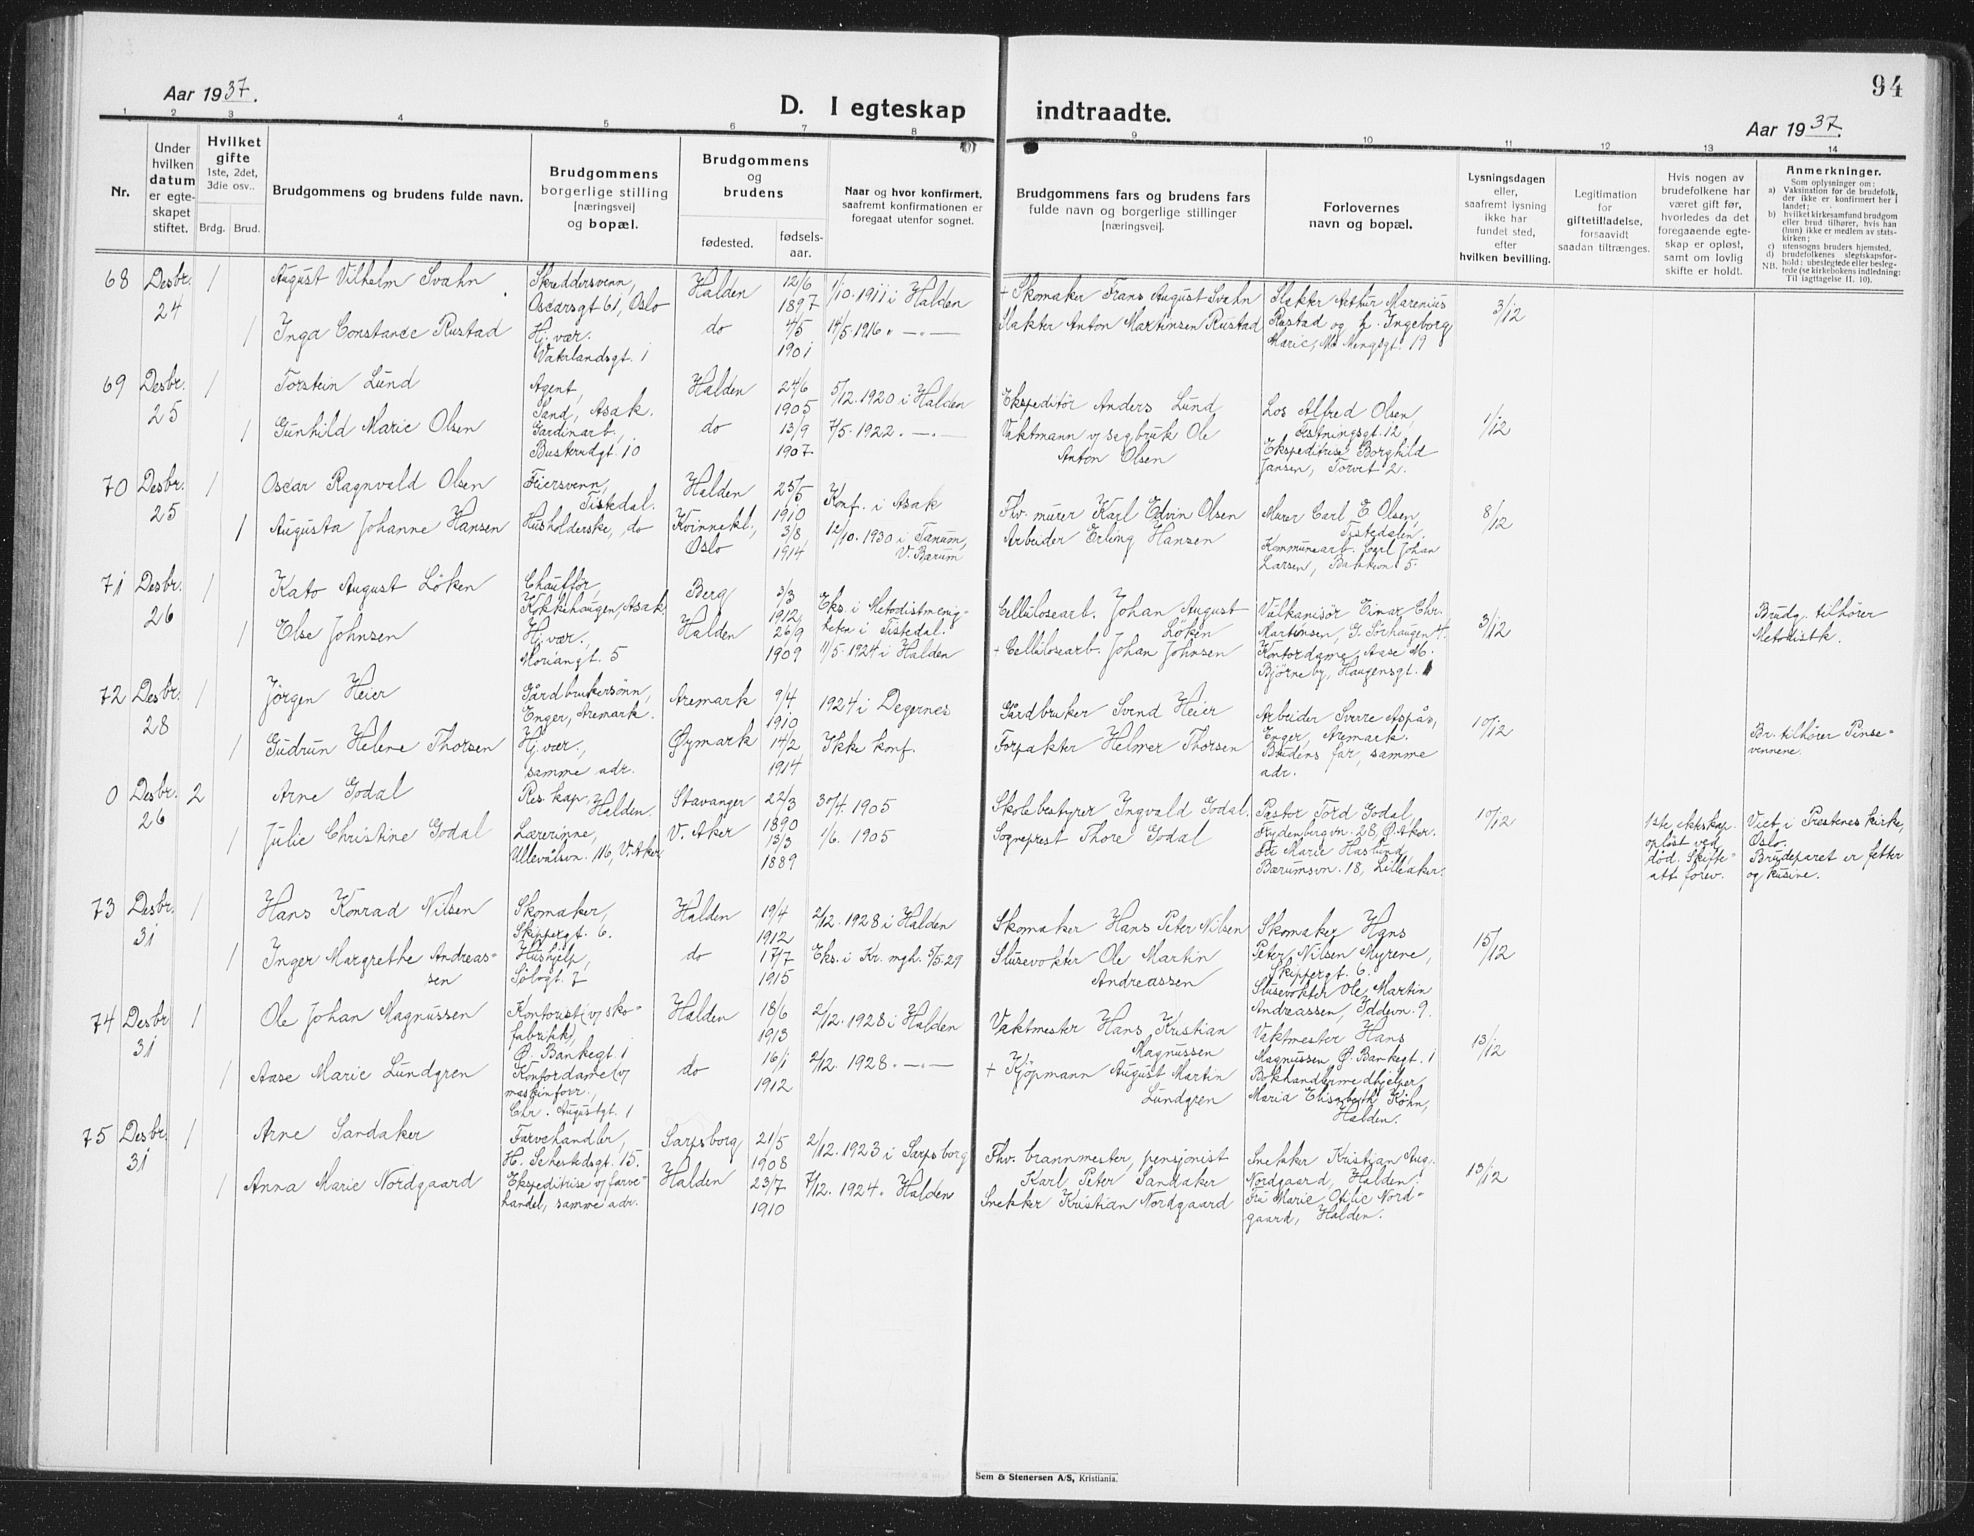 94
Aar 1937.
D. I egteskap indtraadte.
Aar 1937.
1 2 3 4 5 6 7 8 9 10 11 12 13 14
Nr.
Under hvilken datum er egteskapet stiftet.
Hvilket gifte 1ste, 2det, 3die osv..
Brdg. Brud.
Brudgommens og brudens fulde navn.
Brudgommens borgerlige stilling [næringsvei] og bopæl.
Brudgommens og brudens
fødested. fødsels-aar.
Naar og hvor konfirmert, saafremt konfirmationen er foregaat utenfor sognet.
Brudgommens fars og brudens fars fulde navn og borgerlige stillinger [næringsvei].
Forlovernes navn og bopæl.
Lysningsdagen eller, saafremt lysning ikke har fundet sted, efter hvilken bevilling.
Legitimation for giftetilladelse, forsaavidt saadan tiltrænges.
Hvis nogen av brudefolkene har været gift før, hvorledes da det foregaaende egteskap er opløst, samt om lovlig skifte er holdt.
Anmerkninger.
Som oplysninger om:
a) Vaksination for de brudefolk, der ikke er konfirmert her i landet;
b) hvilket kirkesamfund brudgom eller brud tilhører, hvis han (hun) ikke er medlem av statskirken;
c) utensogns bruders hjemsted,
d) brudefolkenes slegtskapsforhold: ubeslegtede eller beslegtede (se kirkebokens indledning: Til iagttagelse II. 10).
NB.
68 Desbr. 24 1 August Vilhelm Svahn Skreddersvenn, Oscarsgt 61, Oslo Halden 12/6 1897 1/10. 1911 i Halden + Skomaker Frans August Svahn Slakter Arthur Marenius Rustad og h. Ingeborg Marie, Mengsgt. 19 3/12
1 Inga Constance Rustad Hj. vær. Vaterlandsgt. 1 do 4/5 1901 14/5 1916 " — " — Slakter Anton Martinsen Rustad
69 Desbr. 25 1 Torstein Lund Agent, Sand, Asak. Halden 24/6 1905 5/12. 1920 i Halden Ekspeditør Anders Lund Los Alfred Olsen, Festningsgt. 12, Ekspeditrise Borghild Jansen, Torvet 2. 1/12
1 Gunhild Marie Olsen Gardinarb., Busterudgt. 10 do 13/9 1907 7/5. 1922. — " — Vaktmann v/ sagbruk Ole Anton Olsen
70 Desbr. 25 1 Oscar Ragnvald Olsen Feiersvenn, Tistedal. Halden 25/5 1910 Konf. i Asak Fhv. murer Karl Edvin Olsen Murer Carl E. Olsen, Tistedalen. Kommunearb. Carl Johan Larsen, Bakken 5. 8/12
1 Augusta Johanne Hansen Husholderske, do Kvinnekl., Oslo 3/8 1914 12/10. 1930 i Tanum, V. Bærum Arbeider Erling Hansen
71 Desbr. 26 1 Kato August Löken Chauffør, Kokkehaugen, Asak Berg 3/3 1912 Eks. i Metodistmenigheten i Tistedal. Cellulosearb. Johan August Löken Vulkanisör Einar Chr. Martinsen, G. Sörhaugen 4. Kontordame, Aase M. Bjørneby, Haugensgt. 1 3/12 Brudg. tilhører Metodistk.
1 Else Johnsen Hj. vær., Moriangt. 5 Halden 26/9 1909 11/5. 1924 i Halden + Cellulosearb. Johan Johnsen
72 Desbr. 28 1 Jørgen Heier Gårdbrukersønn, Enger, Aremark. Aremark 9/4 1910 1924 i Degernes Gårdbruker Svend Heier Arbeider Sverre Aspås, Enger, Aremark. Brudens far, samme adr. 10/12 Br. tilhører Pinsevennene.
1 Gudrun Helene Thorsen Hj. vær., samme adr. Øymark 14/2 1914 Ikke konf. Forpakter Helmer Thorsen
0 Desbr. 26 2 Arne Godal Res. kap., Halden. Stavanger 22/3 1890 30/4. 1905 Skolebestyrer Ingvald Godal. Pastor Tord Godal, Frydenbergvn. 28, Ø. Aker. Fru Marie Haslund, Bærumsvn. 18, Lilleaker. 10/12 1ste ektskap opløst ved død. Skifteatt. forev. Viet i Prestenes kirke, Oslo. Brudeparet er fetter og kusine.
1 Julie Christine Godal Lærerinne, Ullevålsvn. 116, V. Aker V. Aker 13/3 1889 1/6. 1905 Sogneprest Thore Godal
73 Desbr. 31 1 Hans Konrad Nilsen Skomaker, Skippergt. 6. Halden 19/4 1912 2/12. 1928 i Halden Skomaker Hans Peter Nilsen Skomaker Hans Peter Nilsen Myrene, Skippergt. 6. Slusevokter Ole Martin Andreassen, Iddevn. 9. 15/12
1 Inger Margrethe Andreassen Hushjelp, Sölvgt. 7 do 17/7 1915 Eks. i Kr. mgh. 5/5-29 Slusevokter Ole Martin Andreassen
74 Desbr 31 1 Ole Johan Magnussen Kontorist (v/ skofabrikk), Ø. Bankegt. 1 Halden 18/6 1913 2/12. 1928 i Halden Vaktmester Hans Kristian Magnussen Vaktmester Hans Magnussen, Ø. Bankegt. 1 Bokhandlermedhjelper Maria Elisabeth Køhn, Halden. 13/12
1 Aase Marie Lundgren Kontordame (v/ maskinforr., Chr. Augustgt. 1 do 16/1 1912 2/12. 1928. — " — + Kjöpmann August Martin Lundgren
75 Desbr. 31 1 Arne Sandaker Farvehandler, H. Sehestedsgt. 15. Sarpsborg 21/5 1908 2/12. 1923 i Sarpsborg Fhv. brannmester, pensjonist Karl Peter Sandaker Snekker Kristian Aug. Nordgaard, Halden. Fru Marie Otilie Nordgaard, Halden. 13/12
1 Anna Marie Nordgaard Ekspeditrise v/ farvehandel, samme adr. Halden 23/7 1910 7/12. 1924. Halden Snekker Kristian Nordgaard
Sem & Stenersen A/S, Kristiania.